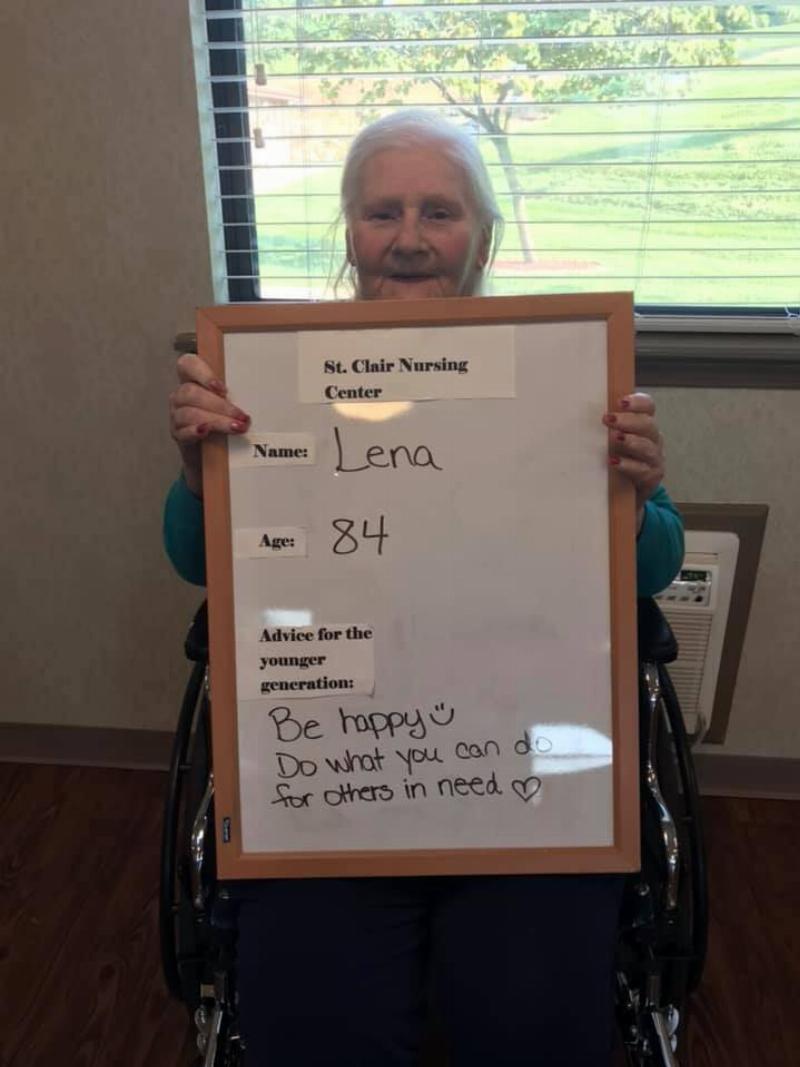 St. Clair Nursing
Center
Name: Lena
Age: 84
Advice for the
younger
generation:
Be happy
Do what you can do
for others in need ♡